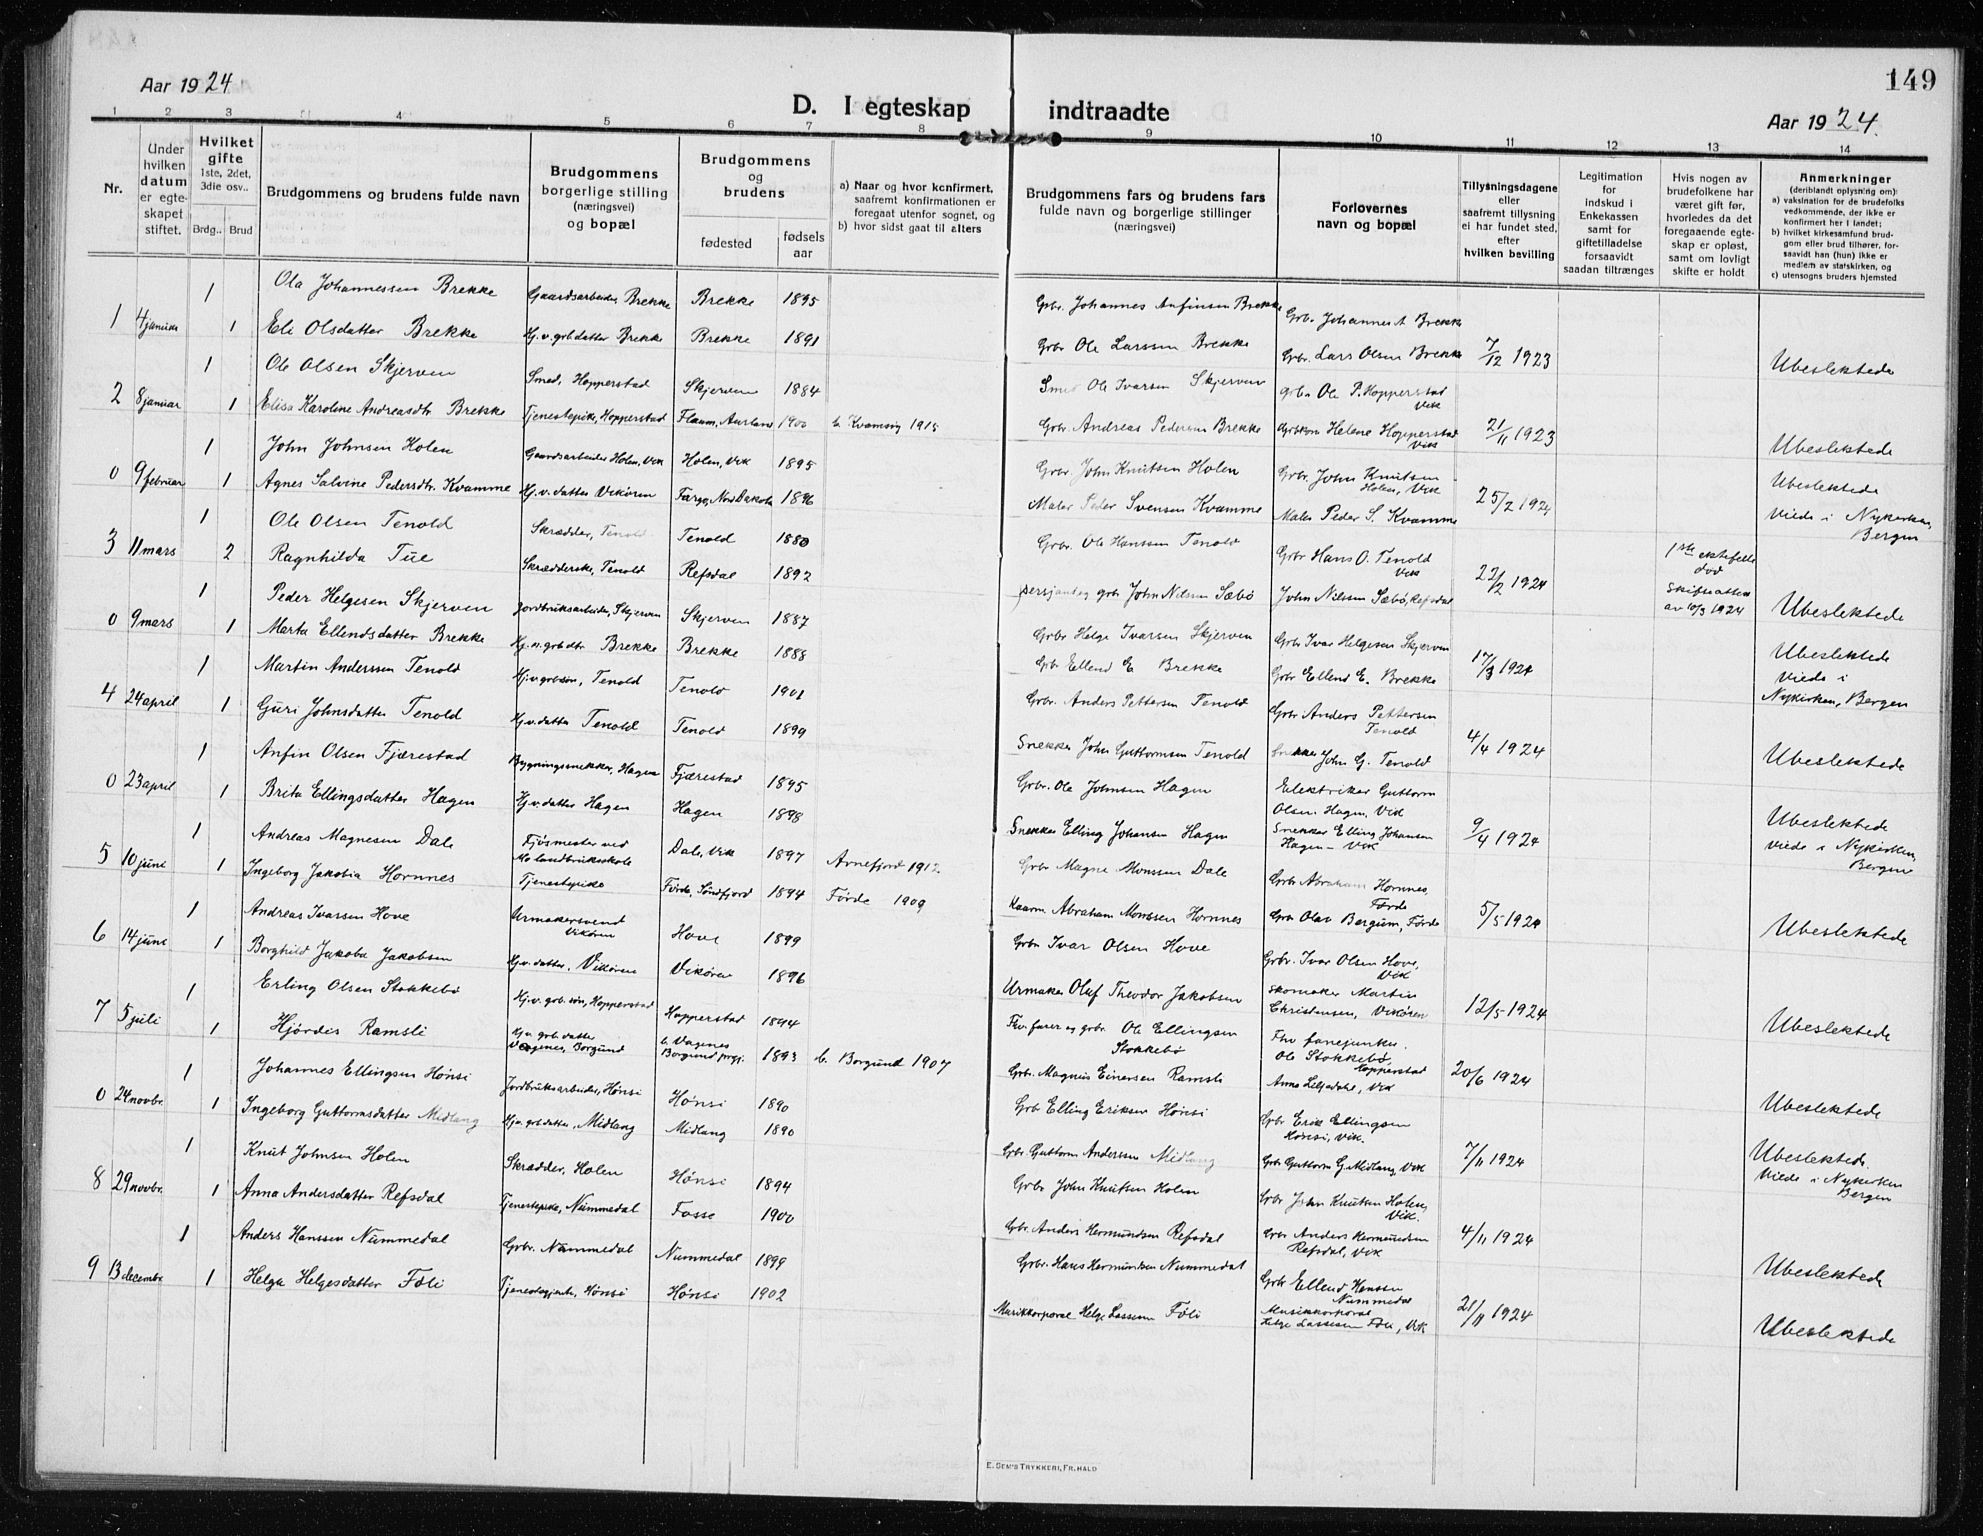 149
Aar 1924
D. I egteskap indtraadte
Aar 1924.
1 2 3 4 5 6 7 8 9 10 11 12 13 14
Nr.
Under hvilken datum er egteskapet stiftet.
Hvilket gifte 1ste, 2det, 3die osv..
Brdg.. Brud
Brudgommens og brudens fulde navn
Brudgommens borgerlige stilling (næringsvei) og bopæl
Brudgommens og brudens
fødested
fødselsaar
a) Naar og hvor konfirmert, saafremt konfirmationen er foregaat utenfor sognet, og
b) hvor sidst gaat til alters
Brudgommens fars og brudens fars fulde navn og borgerlige stillinger (næringsvei)
Forløvernes navn og bopæl
Tillysningsdagene eller saafremt tillysning ei har fundet sted, efter hvilken bevilling
Legitimation for indskud i Enkekassen samt for giftetilladelse forsaavidt saadan tiltrænges
Hvis nogen av brudefolkene har været gift før, hvorledes da det foregaaende egteskap er opløst, samt om lovligt skifte er holdt
Anmerkninger (deriblandt oplysning om):
a) vaksination for de brudefolks vedkommende, der ikke er konfirmert her i landet;
b) hvilket kirkesamfund brudgom eller brud tilhører, forsaavidt han (hun) ikke er medlem av statskirken, og
c) utensogns bruders hjemsted
1 4 januar 1 Ola Johannessen Brekke Gaardsarbeider, Brekke Brekke 1895 Grbr. Johannes Anfinsen Brekke Grbr. Johannes A Brekke
1 Eli Olsdatter Brekke Hj.v. grb.datter Brekke Brekke 1891 Grbr Ole Larssen Brekke Grbr. Lars Olsen Brekke 7/12 1923 Ubeslektede
2 8 januar 1 Ole Olsen Skjerven Smed, Hopperstad Skjerven 1884 Smed Ole Ivarsen Skjerven grbr Ole P. Hopperstad Vik
1 Elisa Karoline Andreasdtr. Brekke Tjenestepike, Hopperstad Flaam, Aurland 1900 b. Kvamsøy 1915 Grbr. Andreas Pedersen Brekke Grbkone Helene Hopperstad Vik 21/11 1923 Ubeslektede
0 9 februar 1 John Johnsen Holen Gaardsarbeider Holen, Vik Holen, Vik 1895 Grbr. John Knutsen Holen Grbr. John Knutsen Holen, Vik
1 Agnes Salvine Pedersdtr. Kvamme Hj.v. datter Vikøren Fargo, Nord Dakota 1896 Maler Peder Svensen Kvamme Maler Peder S. Kvamme 25/2 1924 Ubeslektede Viede i Nykirken, Bergen
3 11 mars 1 Ole Olsen Tenold Skrædder, Tenold Tenold 1880 Grbr. Ole Hanssen Tenold Grbr Hans O. Tenold Vik
2 Ragnhilda Tue Skrædderske, Tenold Refsdal 1892 sersjant og grbr John Nilsen Sæbø John Nilssen Sæbø, Refsdal 22/2 1924 1ste ektefelle død Skifteattest av 10/3 1924 Ubeslektede
0 9 mars 1 Peder Helgesen Skjerven Jordbruksarbeider, Skjerven Skjerven 1887 Grbr Helge Ivarsen Skjerven Grbr Ivar Helgesen Skjerven
1 Marta Ellendsdatter Brekke Hj.v. grb.dtr. Brekke Brekke 1888 Grbr Ellend E. Brekke Grbr Ellend E. Brekke 17/3 1924 Ubeslektede Viede i Nykirken, Bergen
4 24 april 1 Martin Anderssen Tenold Hj.v. grb.søn, Tenold Tenold 1901 Grbr. Anders Pettersen Tenold Grbr Anders Pettersen Tenold
1 Guri Johnsdatter Tenold Hj.v. datter Tenold Tenold 1899 Snekker John Guttormsen Tenold Snekker John G. Tenold 4/4 1924 Ubeslektede
0 23 april 1 Anfin Olsen Fjærestad Bygningssnekker, Hagen Fjærestad 1895 Grbr. Ole Johnsen Hagen Elektriker Guttorm Olsen Hagen, Vik
1 Brita Ellingsdatter Hagen Hj.v. datter Hagen Hagen 1898 Snekker Elling Johansen Hagen Snekker Elling Johansen Hagen - Vik 9/4 1924 Ubeslektede Viede i Nykirken, Bergen
5 10 juni 1 Andreas Magnesen Dale Fjøsmester ved Mo landbruksskole Dale, Vik 1897 Arnefjord 1912 Grbr Magne Monssen Dale Grbr Abraham Hornnes, Førde
1 Ingeborg Jakobia Hornnes Tjenestepike Førde, Søndfjord 1894 Førde 1909 Kaarm. Abraham Monssen Hornnes Grbr Olav Bergum, Førde 5/5 1924 Ubeslektede
6 14 juni 1 Andreas Ivarsen Hove Urmakersvend Vikøren Hove 1899 Grbr Ivar Olsen Hove Grbr. Ivar Olsen Hove, Vik
1 Borghild Jakoba Jakobsen Hj.v. datter, Vikøren Vikøren 1896 Urmaker Oluf Theodor Jakobsen Skomaker Martin Christensen, Vikøren 12/5 1924 Ubeslektede
7 5 juli 1 Erling Olsen Stokkebø Hj.v. grb.søn, Hopperstad Hopperstad 1894 Fhv. furer og grbr. Ole Ellingsen Stokkebø Fhv fanejunker Ole Stokkebø, Hopperstad
1 Hjørdis Ramsli Hj.v. grb.datter Vagenes, Borgund b. Vagenes Borgund prgj. 1893 b. Borgund 1907 Grbr. Magnus Einersen Ramsli Anna Liljedahl, Vik 20/6 1924 Ubeslektede
0 24 novbr. 1 Johannes Ellingsen Hønsi Jordbruksarbeider, Hønsi Hønsi 1890 Grbr Elling Eriksen Hønsi Grbr Erik Ellingsen Hønsi, Vik.
1 Ingeborg Guttormsdatter Midlang Hj.v. grb.datter, Midlang Midlang 1890 Grbr Guttorm Anderssen Midlang Grbr Guttorm G. Midlang, Vik 7/11 1924 Ubeslektede. Viede i Nykirken Bergen
8 29 novbr. 1 Knut Johnsen Holen Skrædder, Holen Hønsi 1894 Grbr John Knutsen Holen Grbr John Knutsen Holen, Vik.
1 Anna Andersdatter Refsdal Tjenestepike, Nummedal Fosse 1900 Grbr. Anders Hermundsen Refsdal Grbr Anders Hermundsen Refsdal, Vik 4/11 1924 Ubeslektede
9 13 decembr. 1 Anders Hanssen Nummedal Grbr. Nummedal Nummedal 1899 Grbr. Hans Hermundsen Nummedal Grbr Ellend Hanssen Nummedal
1 Helga Helgesdatter Føli Tjenestegjente, Hønsi Hønsi 1902 Musikkorporal Helge Lassesen Føli Musikkorporal Helge Lassesen Føli, Vik 21/11 1924 Ubeslektede
E. SEM'S TRYKKERI, FR.HALD